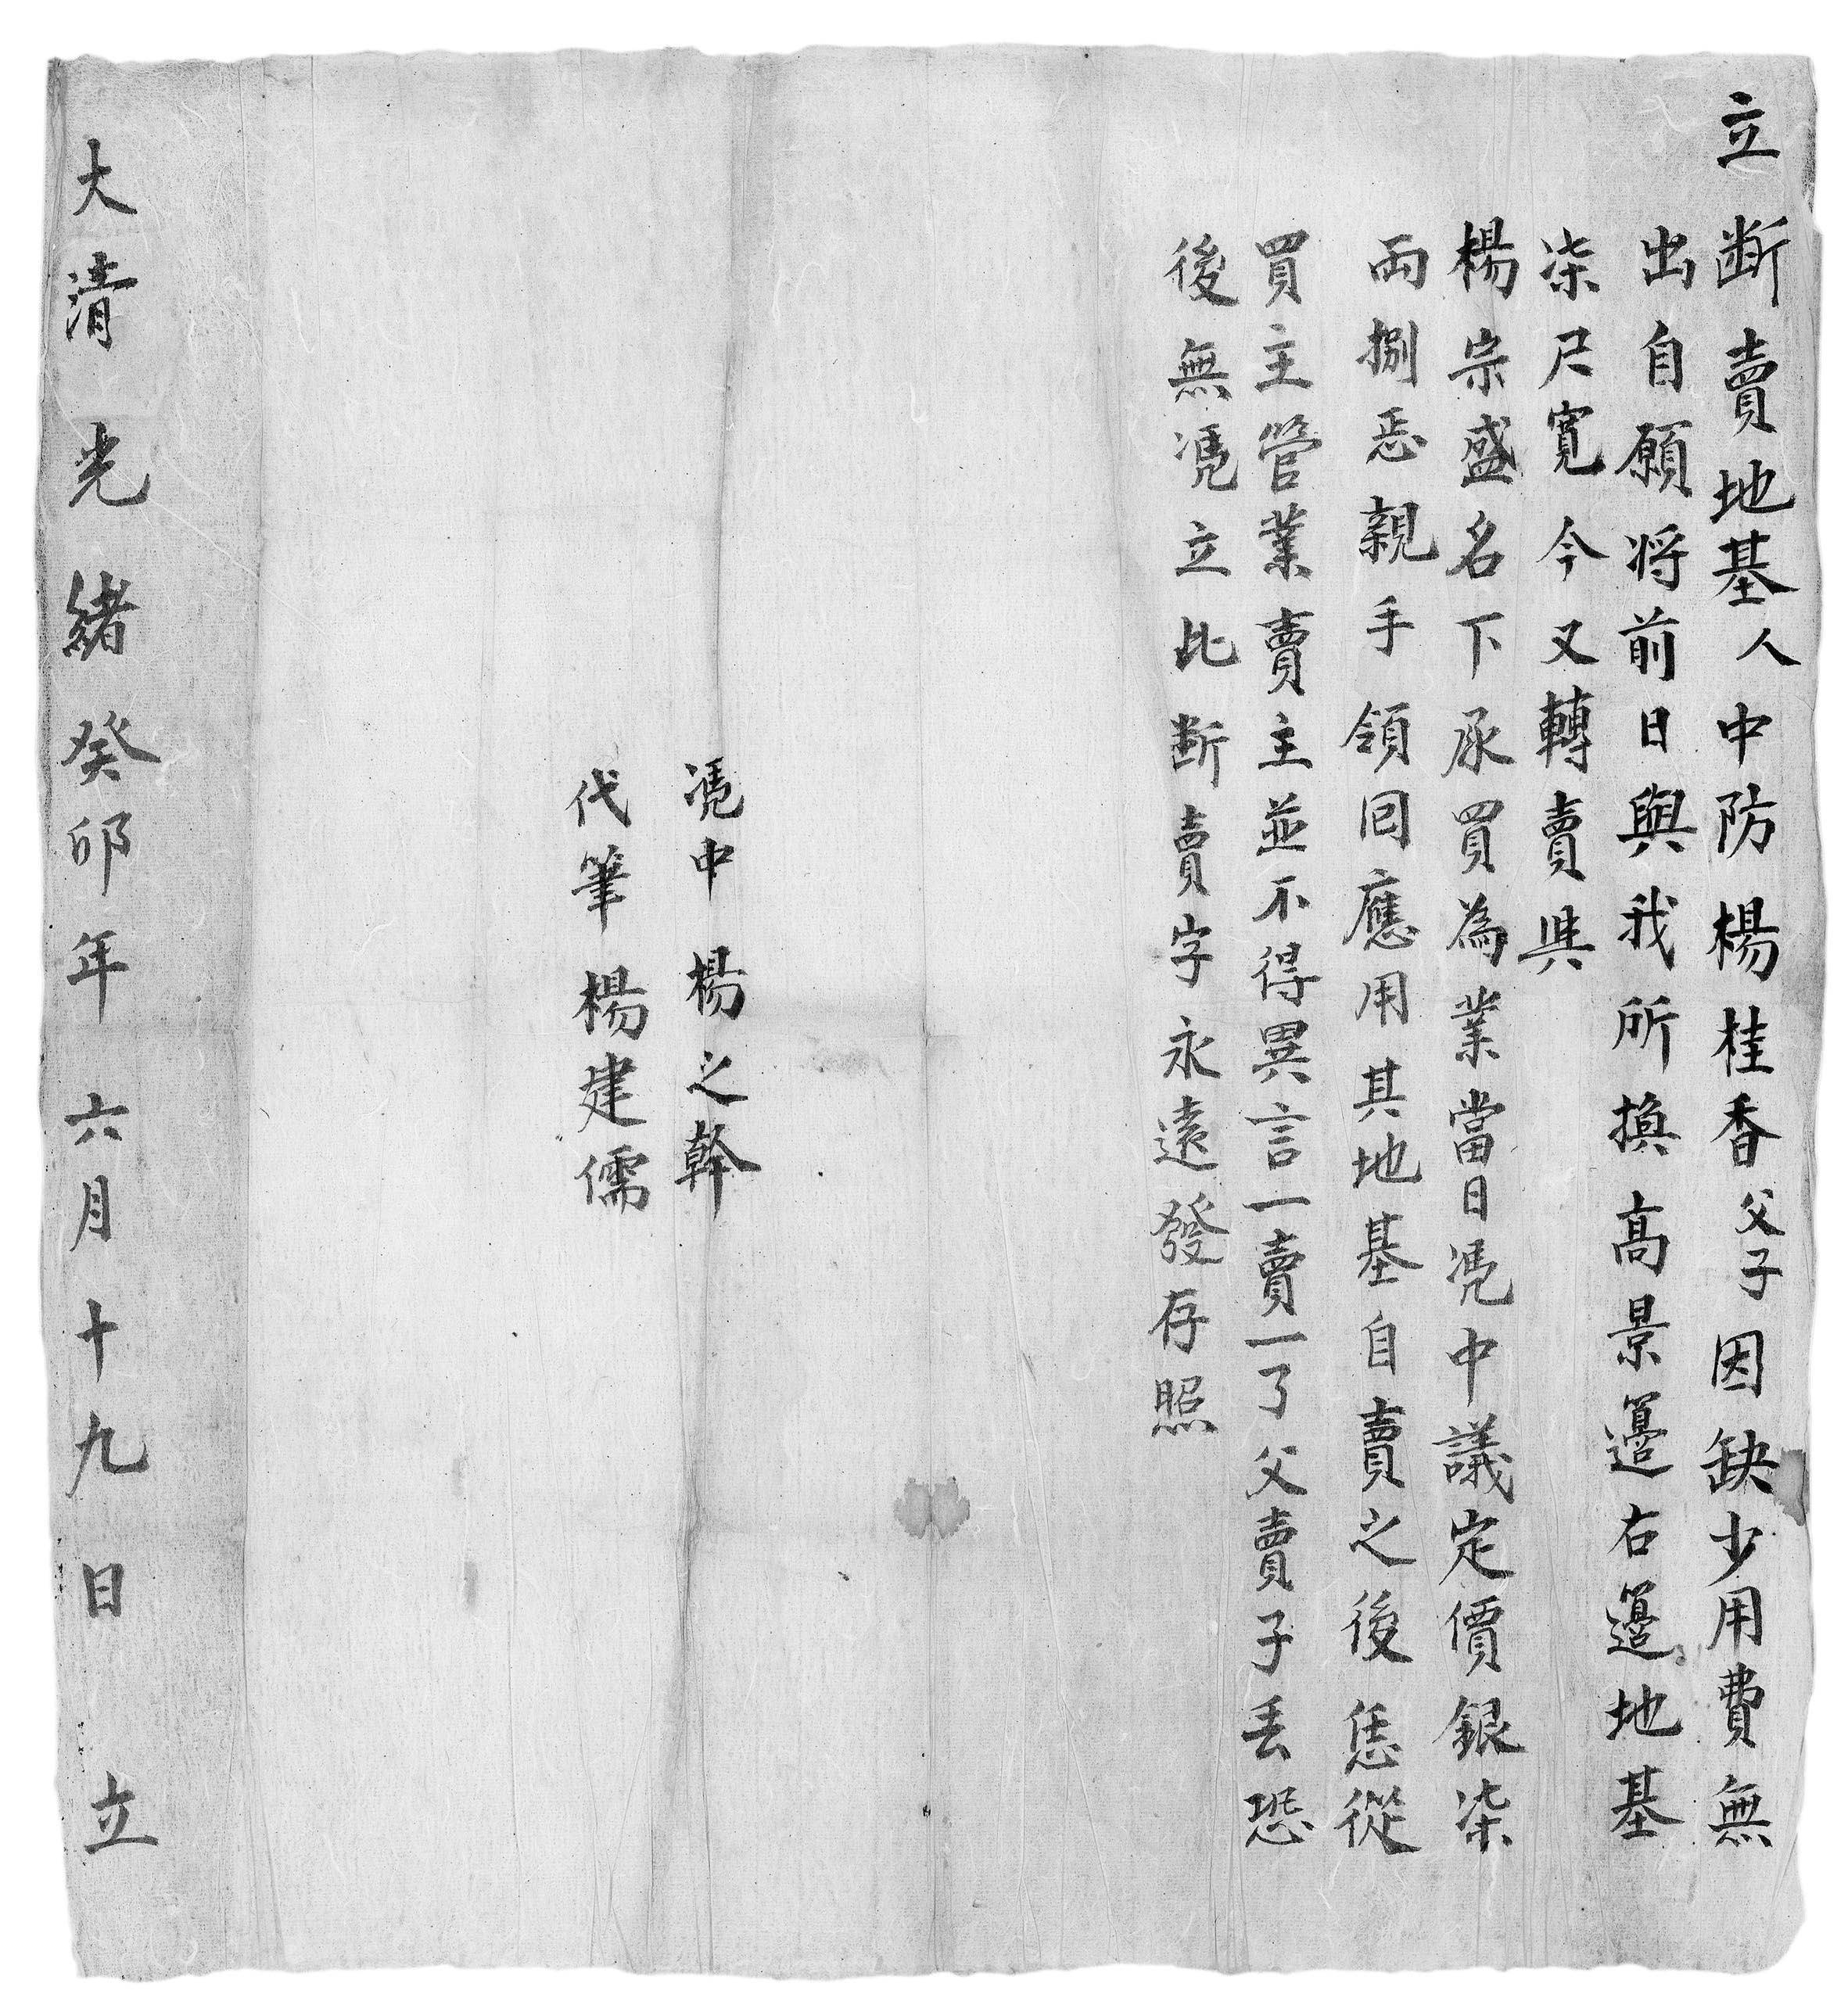 立断賣地基人中防楊桂香父子因缺少用費無
出自願将前日與我所換高景邉右邉地基
柒尺寬今又轉賣與
楊宗盛名下承買為業當日凴中議定價銀柒
両捌忢親手領回應用其地基自賣之後恁從
買主管業賣主並不得異言一賣一了父賣子丢恐
後無凴立比断賣字永遠發存照
凴中楊之幹
代筆楊建儒
大清光緒癸卯年六月十九日立